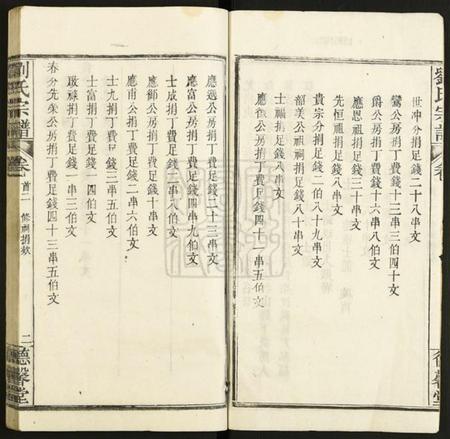 劉氏宗譜 卷
德馨堂
世冲分捐足錢二十八串文
鸞公房捐丁費錢十三串三伯四十文
爵公房捐丁費足錢十六串八伯文
應恩祖捐足錢八串文
先恒祖捐足錢八串文
貴宗分捐足錢二伯八十九串文
韶美公祖祠捐足錢八十串文
士 捐足錢八串文
應 公房捐丁費足錢四十一串五伯文
應選公房捐丁費足錢二十三串文
應富公房捐丁費足錢四串九伯文
士成捐丁費足錢十串文
應御公捐丁費足錢十串文
應甫公捐丁費足錢二串六伯文
士九捐丁費足錢三串五伯文
士富捐丁費足錢一四伯文
啟祿捐丁費足錢一串五伯文
春分先榮公房捐丁費足錢四十三串五伯文
劉氏宗譜 卷首二 修祠捐款 二 德馨堂